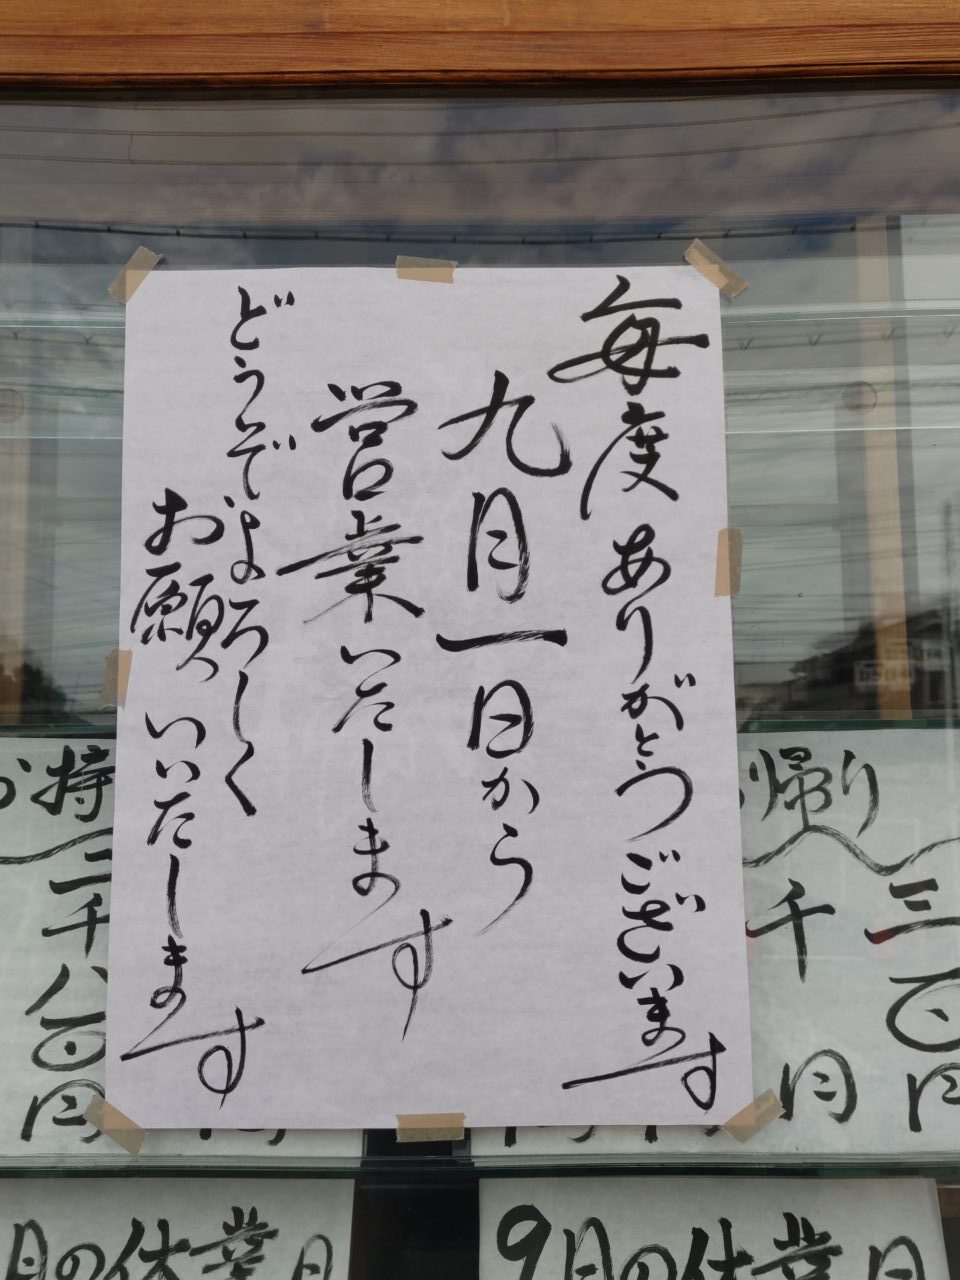 毎度ありがとうございます
九月一日から
営業いたします
どうぞよろしく
お願いいたします
帰り
千
三百円
円
お持
二千八百円
9月の休業日
月の休業日